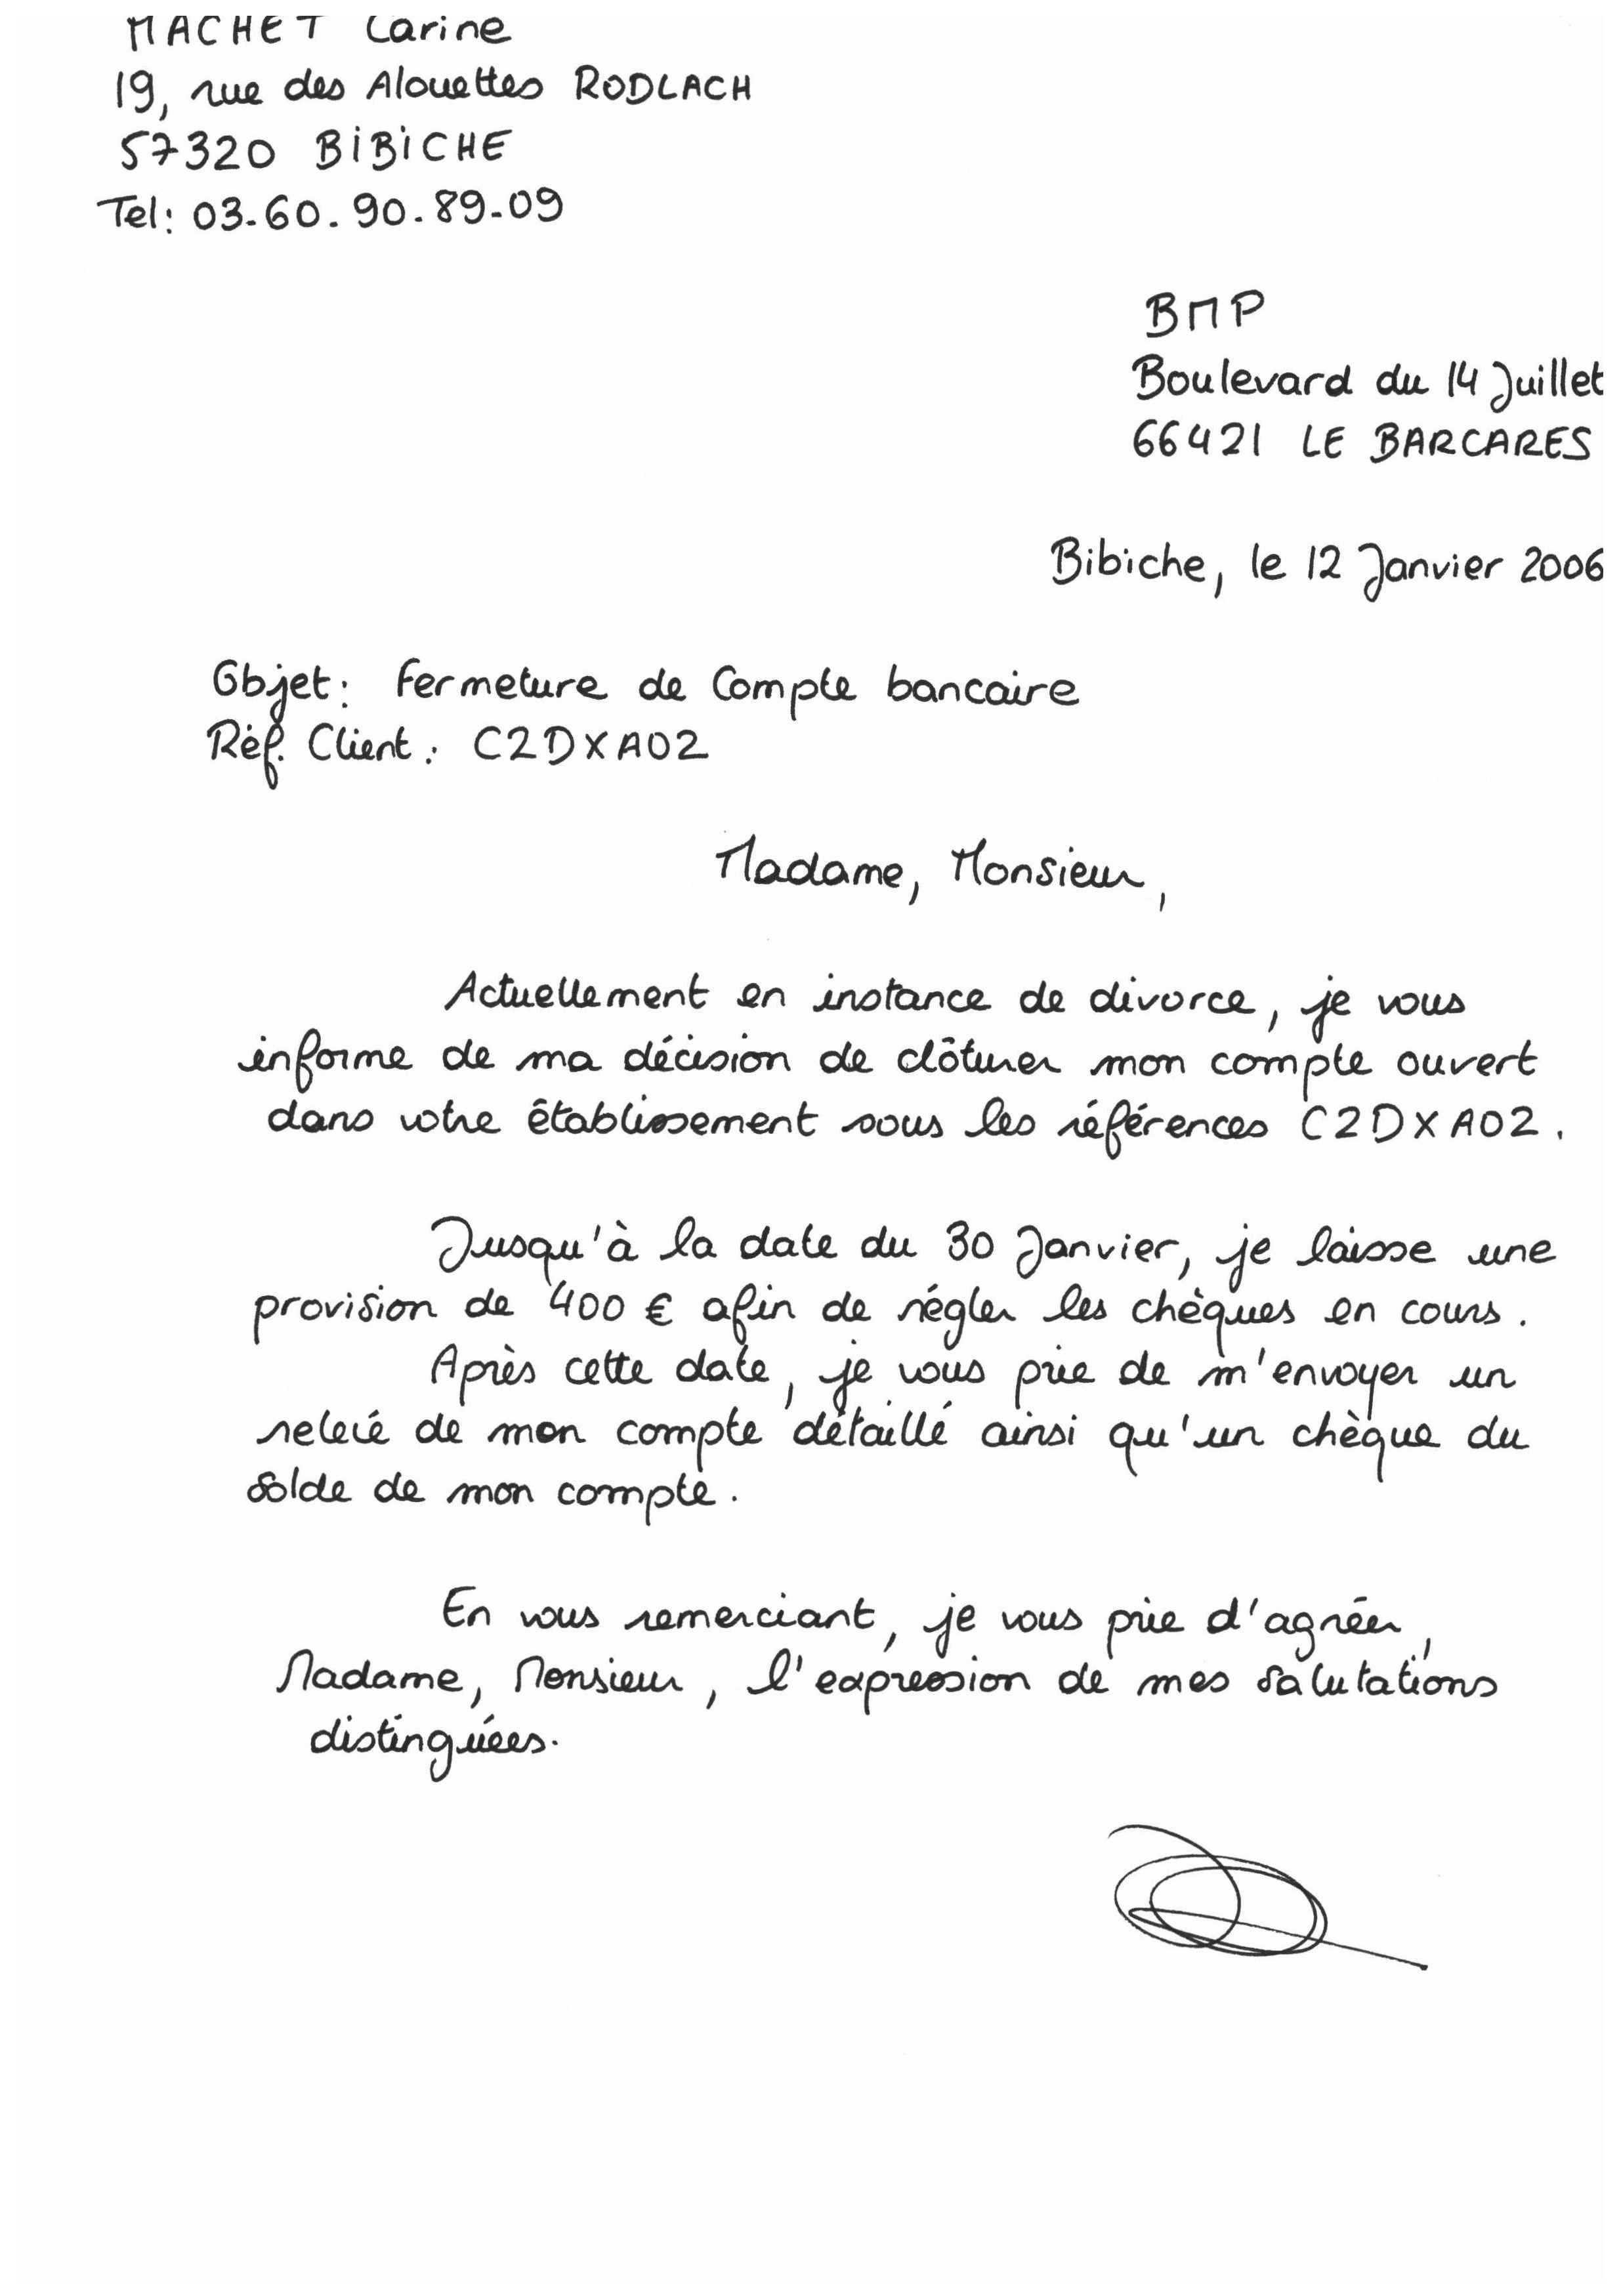 MACHET Carine
19, rue des Alouettes RODLACH
57320 BIBICHE
Tel: 03-60.90.89-09
BMP
Boulevard du 14 Juillet
66421 LE BARCARES
Bibiche, le 12 Janvier 2006
Objet: Fermeture de Compte bancaire
Réf. Client: C2DXA02
Madame, Monsieur,
Actuellement en instance de divorce, je vous
informe de ma décision de clôturer mon compte ouvert
dans votre établissement sous les références C2DXA02.
Jusqu'à la date du 30 Janvier, je laisse une
provision de 400 € afin de régler les chèques en cours.
Après cette date, je vous prie de m'envoyer un
relevé de mon compte détaillé ainsi qu'un chèque du
solde de mon compte.
En vous remerciant, je vous prie d'agréer,
Madame, Monsieur, l'expression de mes salutations
distinguées.